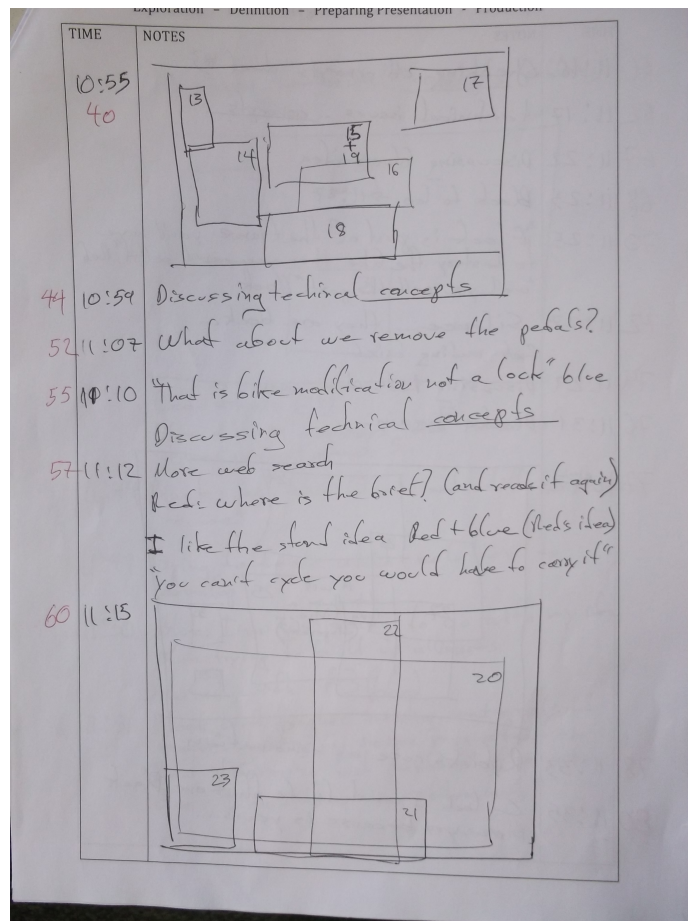 Exploration – Definition – Preparing Presentation - Production
TIME NOTES
10:55
40
13
14
15
+
19
16
17
18
44 10:59 Discussing techircal concepts
52 11:07 What about we remove the pedals?
55 11:10 "That is bike modification not a lock" blue
Discussing technical concepts
57 11:12 More web search
Red: where is the brief? (and reads it again)
I like the stand idea Red + blue (Red's idea)
"you can't cycle you would have to carry it"
60 11:15
22
20
23
21